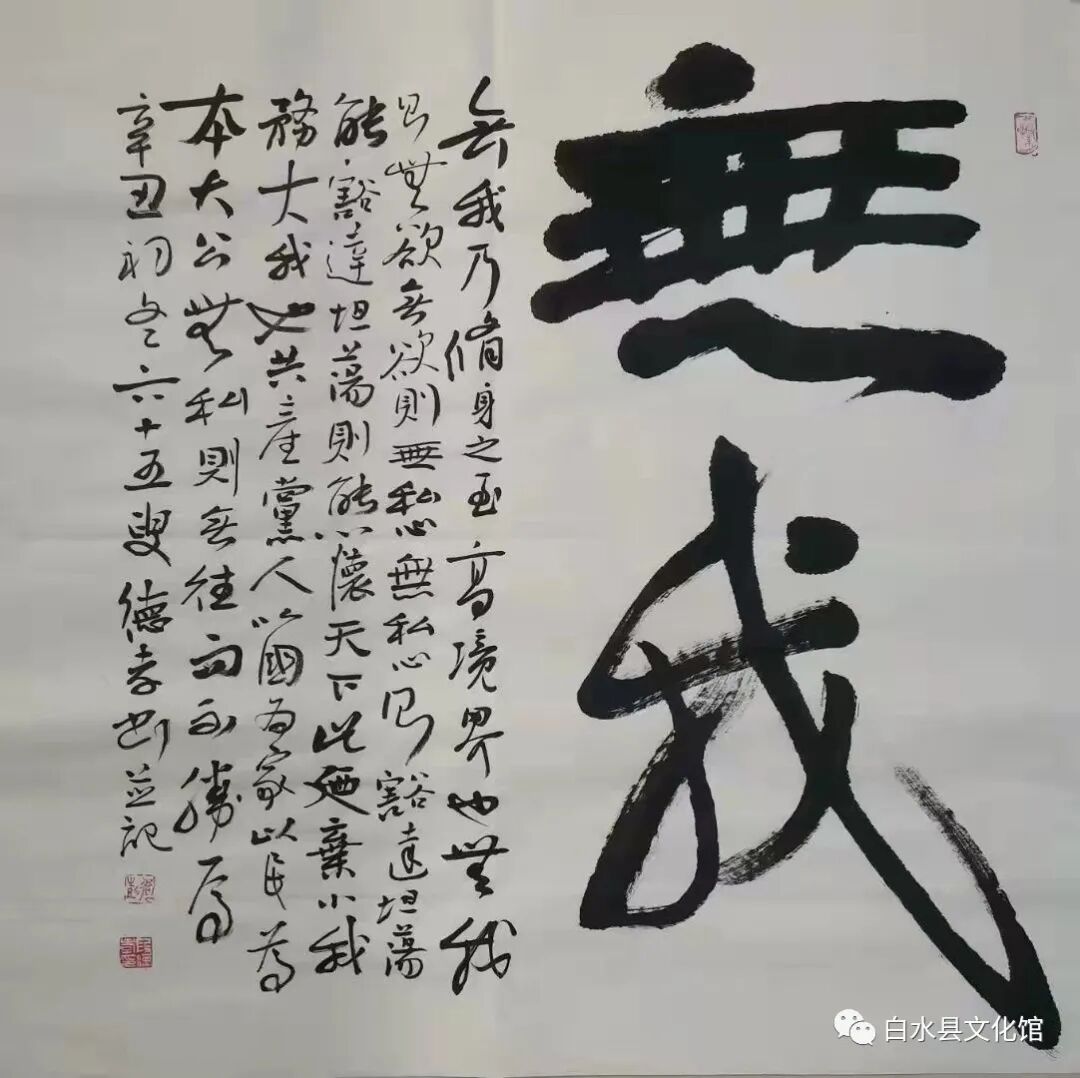 無我
無我乃脩身之至高境界也無我
則無欲無欲則無私心無私心則豁達坦蕩
能豁達坦蕩則能心懷天下此廼棄小我
務大我也共產黨人以國為家以民為
本大公無私則無往而不勝焉
辛丑初冬六十五叟德孝書並記
白水县文化馆